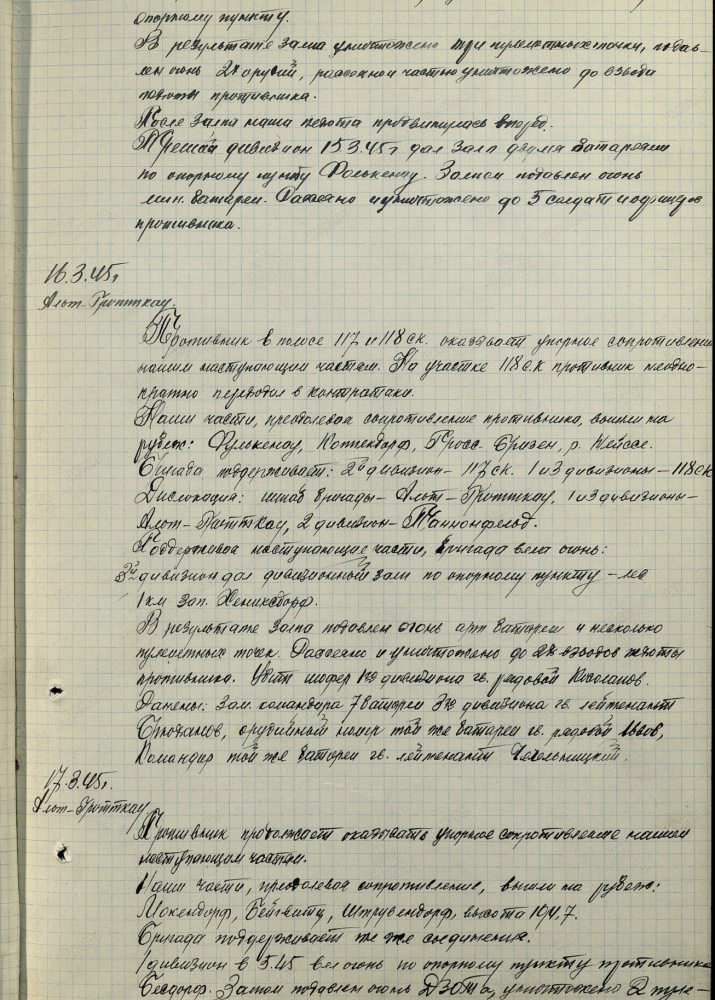 опорному пункту.
В результате залпа уничтожено три пулеметных точки, подав-
лен огонь 2х орудий, рассеяно и частью уничтожено до взвода
пехоты противника.
После залпа наша пехота продвинулась вперед.
Третий дивизион 15.3.45г дал залп двумя батареями
по опорному пункту Фалькенау. Залпом подавлен огонь
мин. батареи. Рассеяно и уничтожено до 5 солдат и офицеров
противника.
16.3.45г
Альт-Гротткау.
Противник в полосе 117 и 118 ск. оказывает упорное сопротивление
нашим наступающим частям. На участке 118 с.к противник неодно-
кратно переходил в контратаки.
Наши части, преодолевая сопротивление противника, вышли на
рубеж: Фулькенау, Коппендорф, Гросс Бризен, р. Нейссе.
Бригада поддерживает: 2й дивизион - 117 ск. 1 и 3 дивизионы - 118 ск
Дислокация: штаб бригады - Альт-Гротткау, 1 и 3 дивизионы -
Альт-Гротткау, 2 дивизион - Танненфельд.
Поддерживая наступающие части, бригада вела огонь:
3й дивизион дал дивизионный залп по опорному пункту - лес
1 км зап. Хениксдорф.
В результате залпа подавлен огонь арт батареи и несколько
пулеметных точек. Рассеяно и уничтожено до 2х взводов пехоты
противника. Убит шофер 1го дивизиона гв. рядовой
Ранены: Зам. командира 7 батареи 3го дивизиона гв. лейтенант
орудийный номер той же батареи гв. рядовой Львов,
Командир той же батареи гв. лейтенант
17.3.45г.
Альт-Гротткау
Противник продолжает оказывать упорное сопротивление нашим
наступающим частям.
Наши части, преодолевая сопротивление, вышли на рубеж:
Макендорф, Бейгвитц, Штрувендорф, высота 194.7.
Бригада поддерживает те же соединения.
1 дивизион в 5.45 вел огонь по опорному пункту противника
Беедорф. Залпом подавлен огонь ДЗОТ'а, уничтожено 2 пуле-